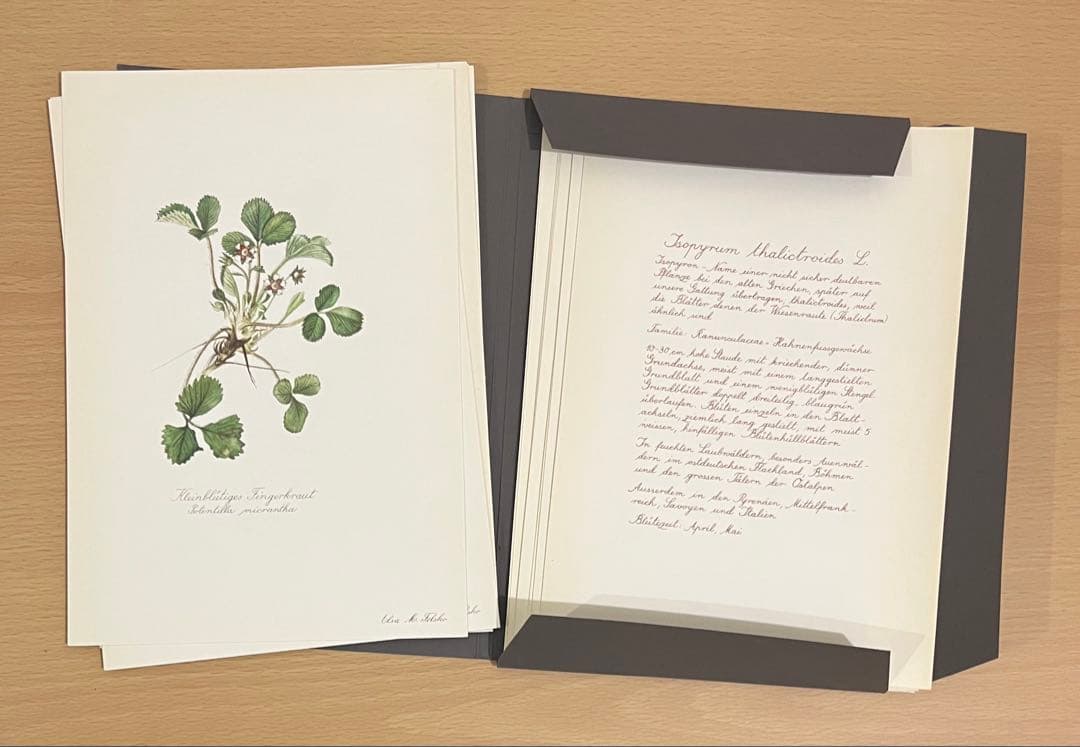 Kleinblütiges Fingerkraut
Potentilla micrantha
Elsa M. Felsko
sko
Isopyrum thalictroides L.
Isopyron - Name einer nicht sicher deutbaren
Pflanze bei den alten Griechen, später auf
unsere Gattung übertragen, thalictroides, weil
die Blätter denen der Wiesenraute (Thalictrum)
ähnlich sind
Familie: Ranunculaceae - Hahnenfussgewächse
10-30 cm hohe Staude mit kriechender, dünner
Grundachse, meist mit einem langgestielten
Grundblatt und einem wenigblütigen Stengel.
Grundblätter doppelt dreiteilig, blaugrün
überlaufen. Blüten einzeln in den Blatt-
achseln, ziemlich lang gestielt, mit meist 5
weissen, hinfälligen Blütenhüllblättern
In feuchten Laubwäldern, besonders Auenwäl-
dern im ostdeutschen Flachland, Böhmen
und den grossen Tälern der Ostalpen
Ausserdem in den Pyrenäen, Mittelfrank-
reich, Savoyen und Italien
Blütezeit: April, Mai